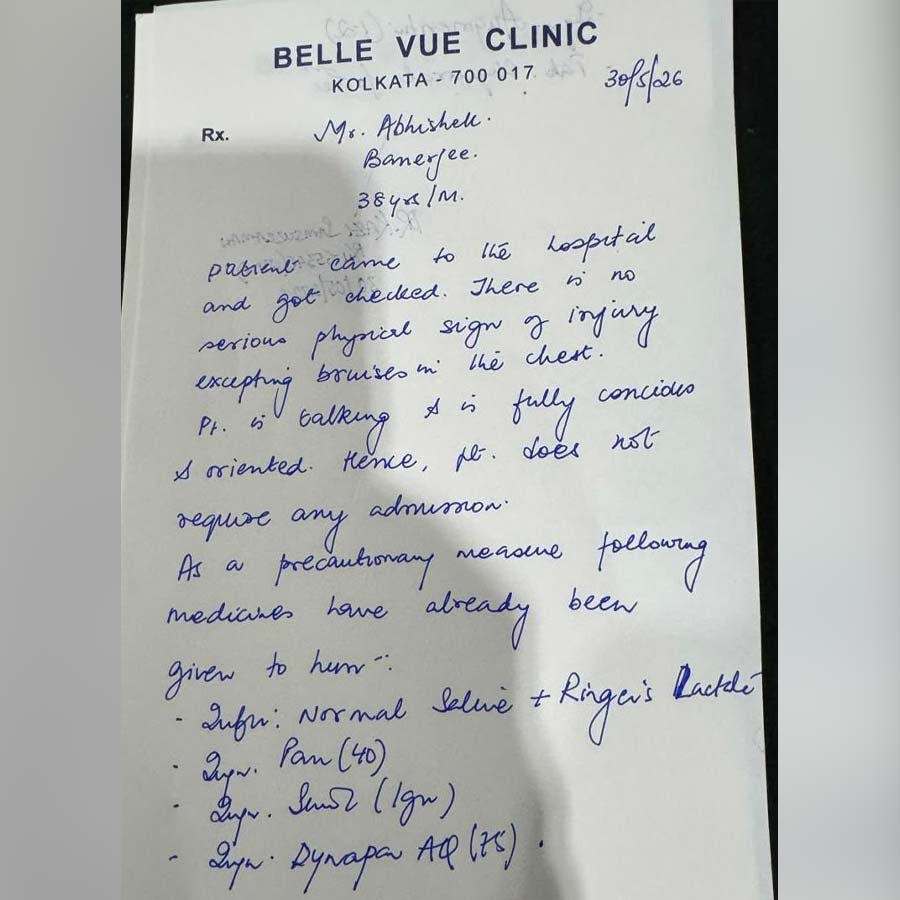 BELLE VUE CLINIC
KOLKATA - 700 017
30/5/26
Rx.
Mr. Abhishek.
Banerjee.
38 yrs/M.
patient came to the hospital
and got checked. There is no
serious physical sign of injury
excepting bruises in the chest.
Pt. is talking & is fully concious
& oriented. Hence, pt. does not
require any admission.
As a precautionary measure following
medicines have already been
given to him -:
- Infn: Normal Saline + Ringer's Lactate
- Inj. Pan (40)
- Inj. (1gm)
- Inj. Dynapar AQ (75).